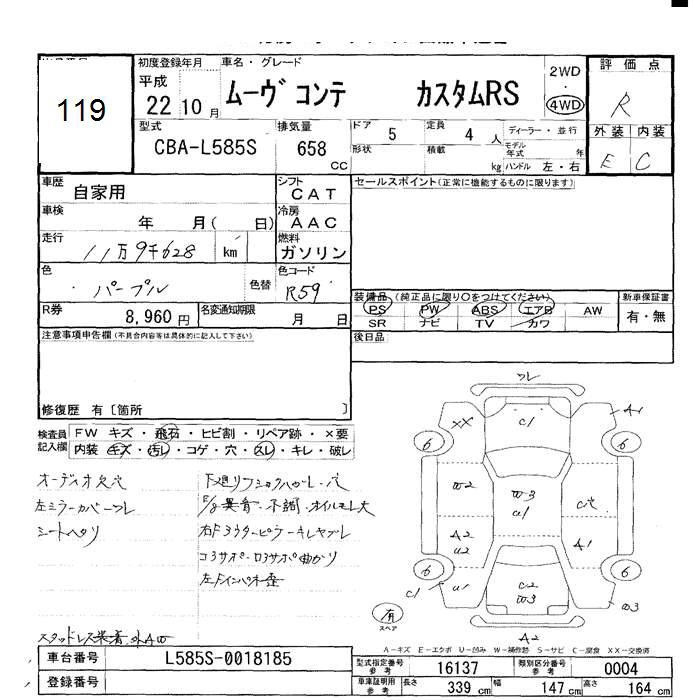 119
初度登録年月
平成 22 10 月
車名・グレード
ムーヴ コンテ カスタムRS
2WD
・
4WD
評価点
R
外装 内装
E C
型式
CBA-L585S
排気量
658 CC
ドア 5
定員 4 人
形状
積載 kg
ディーラー・並行
モデル年式 年
ハンドル 左・右
車歴 自家用
シフト CAT
車検 年 月( 日)
冷房 AAC
走行 11万9千628 km
燃料 ガソリン
色 パープル 色替
色コード R59
R券 8,960円
名変通知期限 月 日
セールスポイント(正常に機能するものに限ります)
装備品 (純正品に限り○をつけてください)
PS PW ABS エアB AW
SR ナビ TV カワ
新車保証書
有・無
後日品
注意事項申告欄(不具合内容等は具体的に記入して下さい)
修復歴 有 [箇所 ]
検査員記入欄
FW キズ・飛石・ヒビ割・リペア跡・×要
内装 キズ・汚レ・コゲ・穴・スレ・キレ・破レ
オーディオ欠穴
左ミラーカバーワレ
シートヘタリ
異音・不調・オイルモレ大
スタッドレス装着
ワレ
C1
XX
A1
6
6
W2
W3
U1
C穴
A2
U2
A1
6
6
C1
U1
C2
W3
W3
A2
有
スペア
A-キズ E-エクボ U-凹み W-補修跡 S-サビ C-腐食 XX-交換済
車台番号 L585S-0018185
登録番号
型式指定番号 参考 16137
類別区分番号 参考 0004
車庫証明用 参考 長さ 339 cm 幅 147 cm 高さ 164 cm